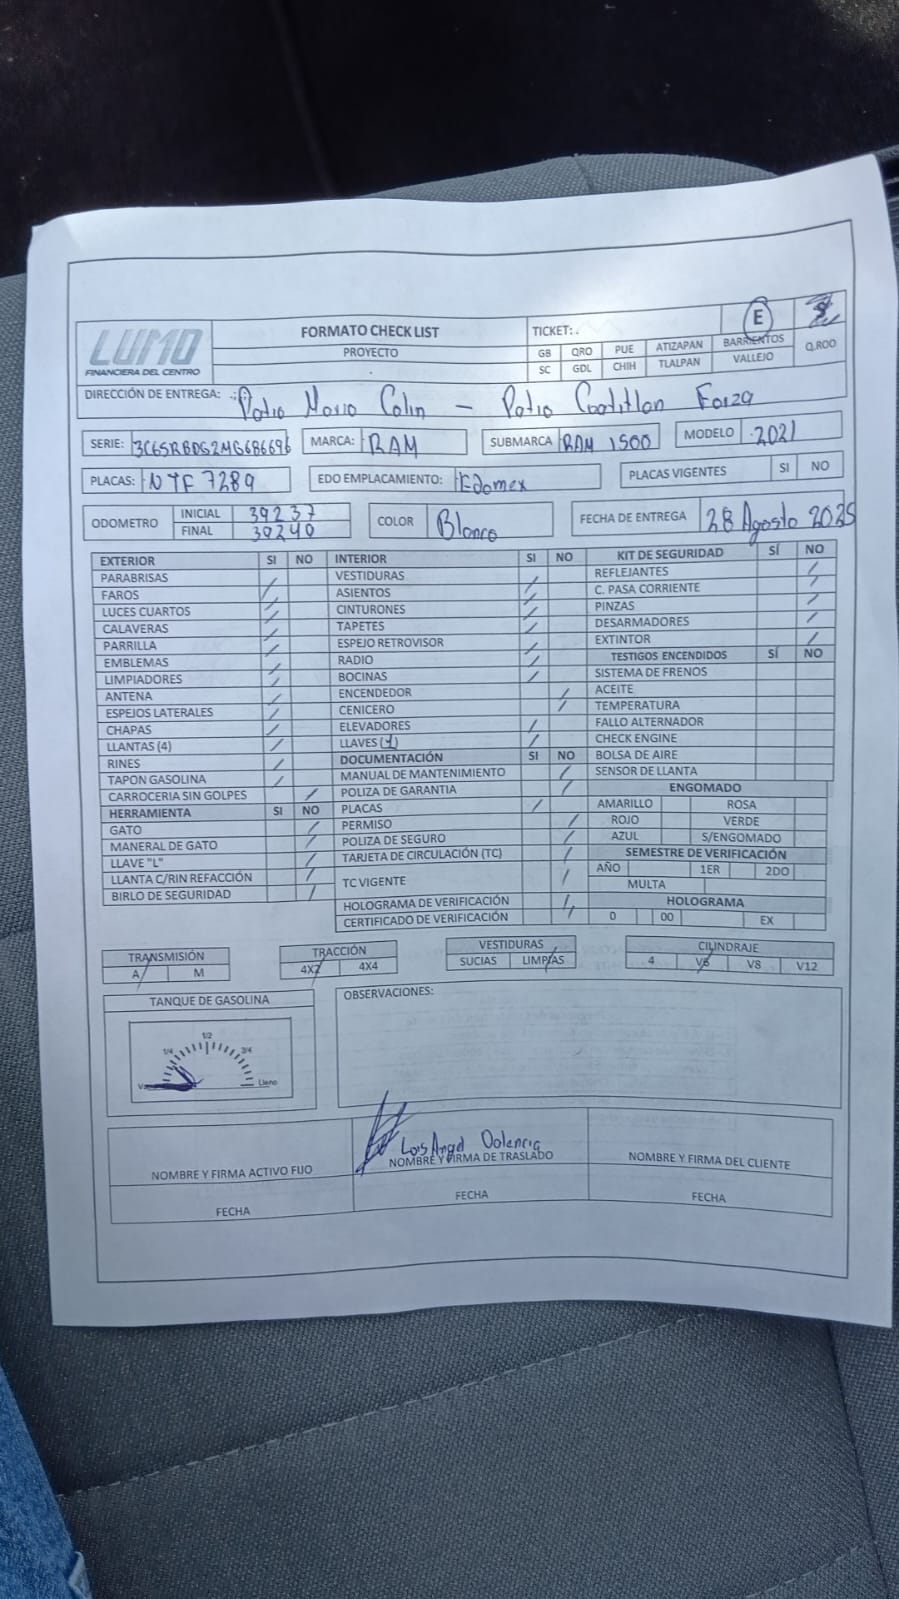 LUMO
FINANCIERA DEL CENTRO
FORMATO CHECK LIST
PROYECTO
TICKET: .
E
GB QRO PUE ATIZAPAN BARRIENTOS Q.ROO
SC GDL CHIH TLALPAN VALLEJO
DIRECCIÓN DE ENTREGA: Patio Mario Colin - Patio Cuatitlan Forza
SERIE: 3C6SRBDG2MG686696 MARCA: RAM SUBMARCA RAM 1500 MODELO 2021
PLACAS: NTF 7289 EDO EMPLACAMIENTO: Edomex PLACAS VIGENTES SI NO
ODOMETRO INICIAL 39237 COLOR Blanco FECHA DE ENTREGA 28 Agosto 2025
FINAL 39240
EXTERIOR SI NO
PARABRISAS /
FAROS /
LUCES CUARTOS /
CALAVERAS /
PARRILLA /
EMBLEMAS /
LIMPIADORES /
ANTENA /
ESPEJOS LATERALES /
CHAPAS /
LLANTAS (4) /
RINES /
TAPON GASOLINA /
CARROCERIA SIN GOLPES /
HERRAMIENTA SI NO
GATO /
MANERAL DE GATO /
LLAVE "L" /
LLANTA C/RIN REFACCIÓN /
BIRLO DE SEGURIDAD /
INTERIOR SI NO
VESTIDURAS /
ASIENTOS /
CINTURONES /
TAPETES /
ESPEJO RETROVISOR /
RADIO /
BOCINAS /
ENCENDEDOR /
CENICERO /
ELEVADORES /
LLAVES (1) /
DOCUMENTACIÓN SI NO
MANUAL DE MANTENIMIENTO /
POLIZA DE GARANTIA /
PLACAS /
PERMISO /
POLIZA DE SEGURO /
TARJETA DE CIRCULACIÓN (TC) /
TC VIGENTE /
HOLOGRAMA DE VERIFICACIÓN /
CERTIFICADO DE VERIFICACIÓN /
KIT DE SEGURIDAD SÍ NO
REFLEJANTES /
C. PASA CORRIENTE /
PINZAS /
DESARMADORES /
EXTINTOR /
TESTIGOS ENCENDIDOS SÍ NO
SISTEMA DE FRENOS
ACEITE
TEMPERATURA
FALLO ALTERNADOR
CHECK ENGINE
BOLSA DE AIRE
SENSOR DE LLANTA
ENGOMADO
AMARILLO ROSA
ROJO VERDE
AZUL S/ENGOMADO
SEMESTRE DE VERIFICACIÓN
AÑO 1ER 2DO
MULTA
HOLOGRAMA
0 00 EX
TRANSMISIÓN
A / M
TRACCIÓN
4X2 / 4X4
VESTIDURAS
SUCIAS LIMPIAS /
CILINDRAJE
4 V6 / V8 V12
TANQUE DE GASOLINA
1/4 1/2 3/4 Lleno
OBSERVACIONES:
Luis Angel Valencia
NOMBRE Y FIRMA ACTIVO FIJO NOMBRE Y FIRMA DE TRASLADO NOMBRE Y FIRMA DEL CLIENTE
FECHA FECHA FECHA